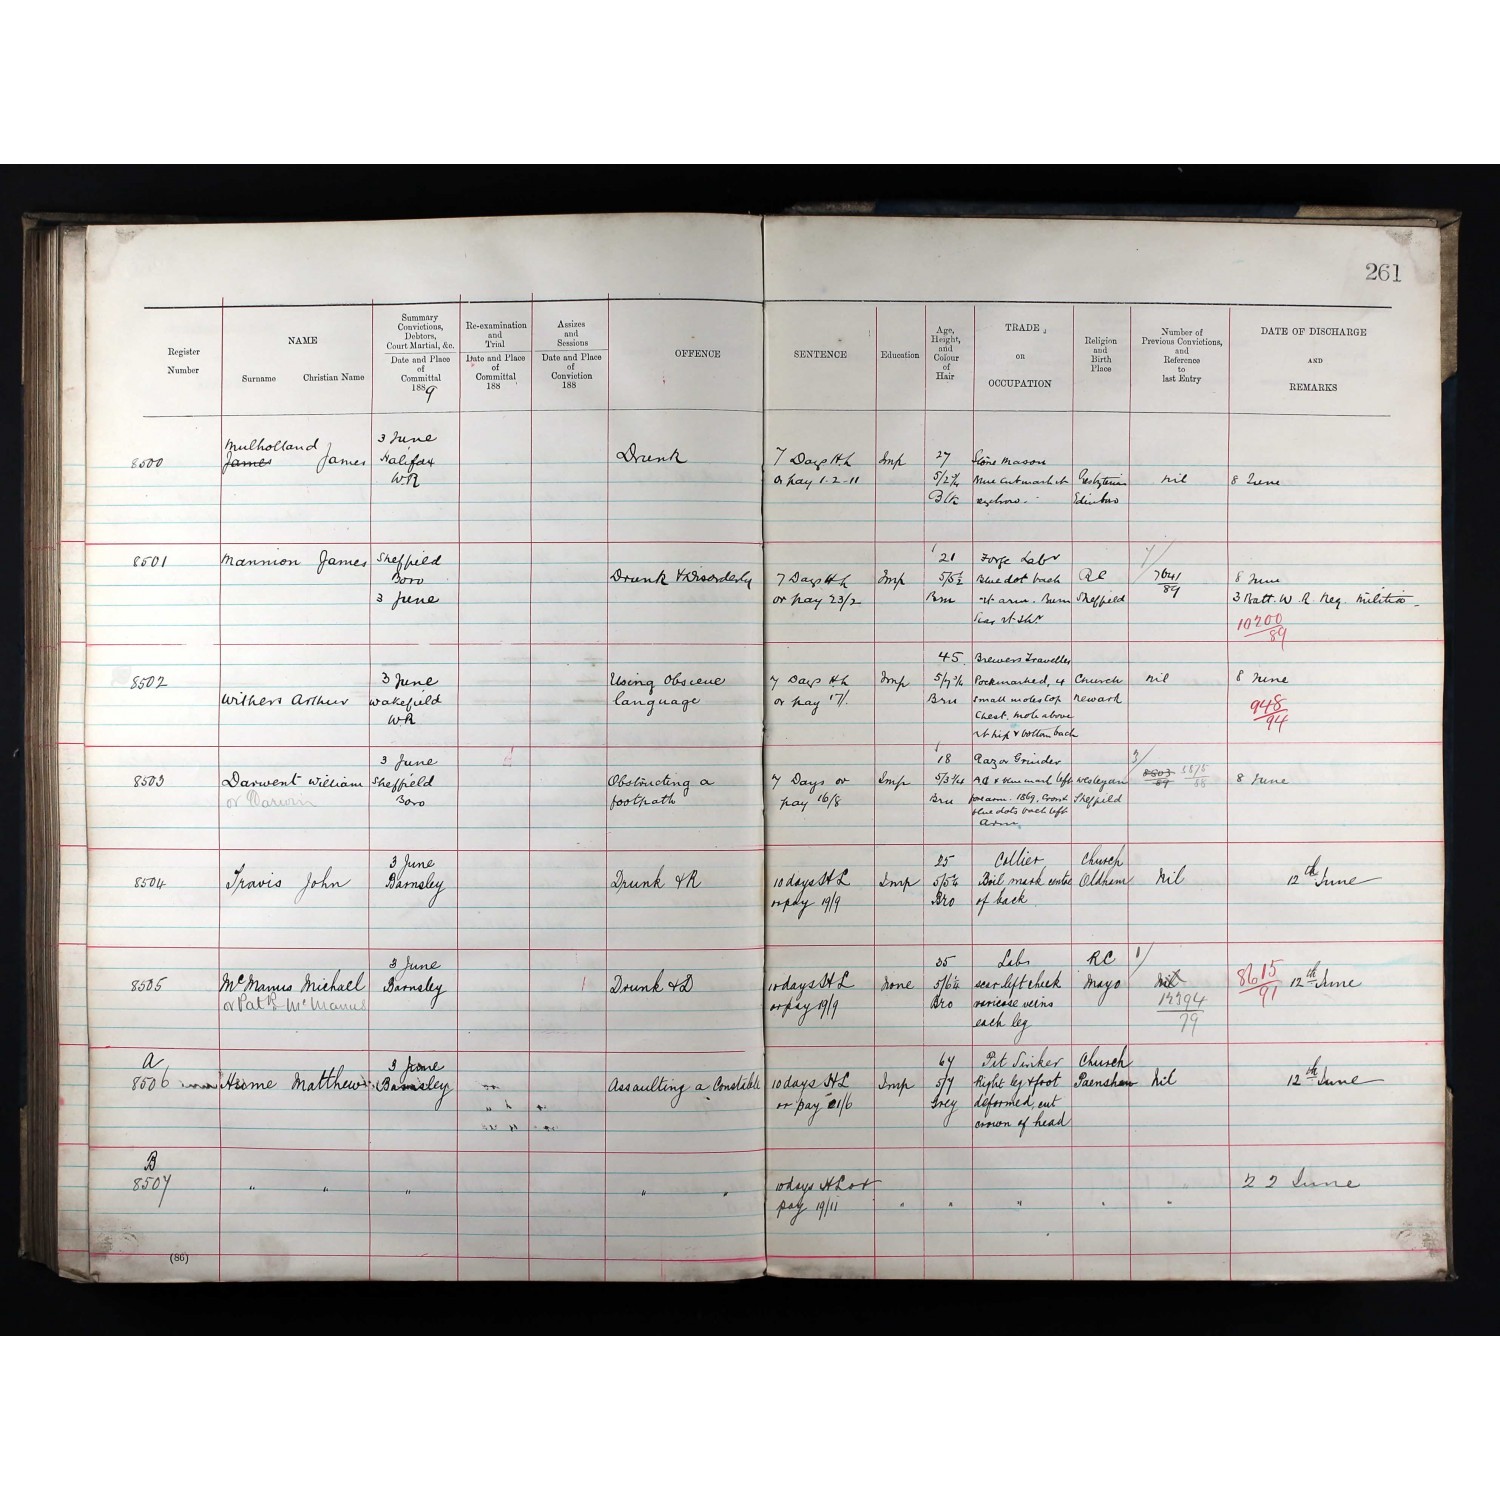 261
Register Number
NAME
Surname Christian Name
Summary Convictions, Debtors, Court Martial, &c.
Date and Place of Committal 1889
Re-examination and Trial
Date and Place of Committal 188
Assizes and Sessions
Date and Place of Conviction 188
OFFENCE
SENTENCE
Education
Age, Height, and Colour of Hair
TRADE or OCCUPATION
Religion and Birth Place
Number of Previous Convictions, and Reference to last Entry
DATE OF DISCHARGE AND REMARKS
8500
Mulholland
James James
3 June
Halifax
W.R
Drunk
7 Days H.L
or pay 1-2-11
Imp
27
5/2¾
Blk
Stone Mason
Blue cut mark
eyebrow
Presbyterian
Edinbro
nil
8 June
8501
Mannion James
Sheffield
Boro
3 June
Drunk & Disorderly
7 Days H.L
or pay 23/2
Imp
21
5/5½
Brn
Forge Labr
Blue dot back
rt arm. Burn
scar rt shr
RC
Sheffield
7/
7641
89
8 June
3 Batt. W. R. Reg. Militia
10200
89
8502
Withers Arthur
3 June
Wakefield
W.R
Using Obscene
language
7 Days H.L
or pay 17/.
Imp
45
5/7¾
Brn
Brewers Traveller
Pockmarked, 4
small moles top
chest. mole above
rt hip & bottom back
Church
Newark
nil
8 June
948
94
8503
Darwent William
or Darwin
3 June
Sheffield
Boro
Obstructing a
footpath
7 Days or
pay 16/8
Imp
18
5/3¼
Brn
Razor Grinder
A.D & blue mark left
forearm. 1869, cross &
blue dots back left
arm
Wesleyan
Sheffield
3/
8503
89
5875
88
8 June
8504
Travis John
3 June
Barnsley
Drunk & R
10 days H L
or pay 19/9
Imp
25
5/5¼
Bro
Collier
Boil mark centre
of back
Church
Oldham
Nil
12th June
8505
McManus Michael
or Patk McManus
3 June
Barnsley
Drunk & D
10 days H L
or pay 19/9
None
35
5/6¼
Bro
Labr
scar left cheek
varicose veins
each leg
RC
Mayo
1/
Nil
12294
79
8615
91
12th June
A
8506
Hulme Matthew
3 June
Barnsley
Assaulting a Constable
10 days H L
or pay 21/6
Imp
67
5/7
Grey
Pit Sinker
Right leg & foot
deformed, cut
crown of head
Church
Nil
12th June
B
8507
" " " " "
10 days H L or
pay 19/11
" " " " "
22 June
(86)